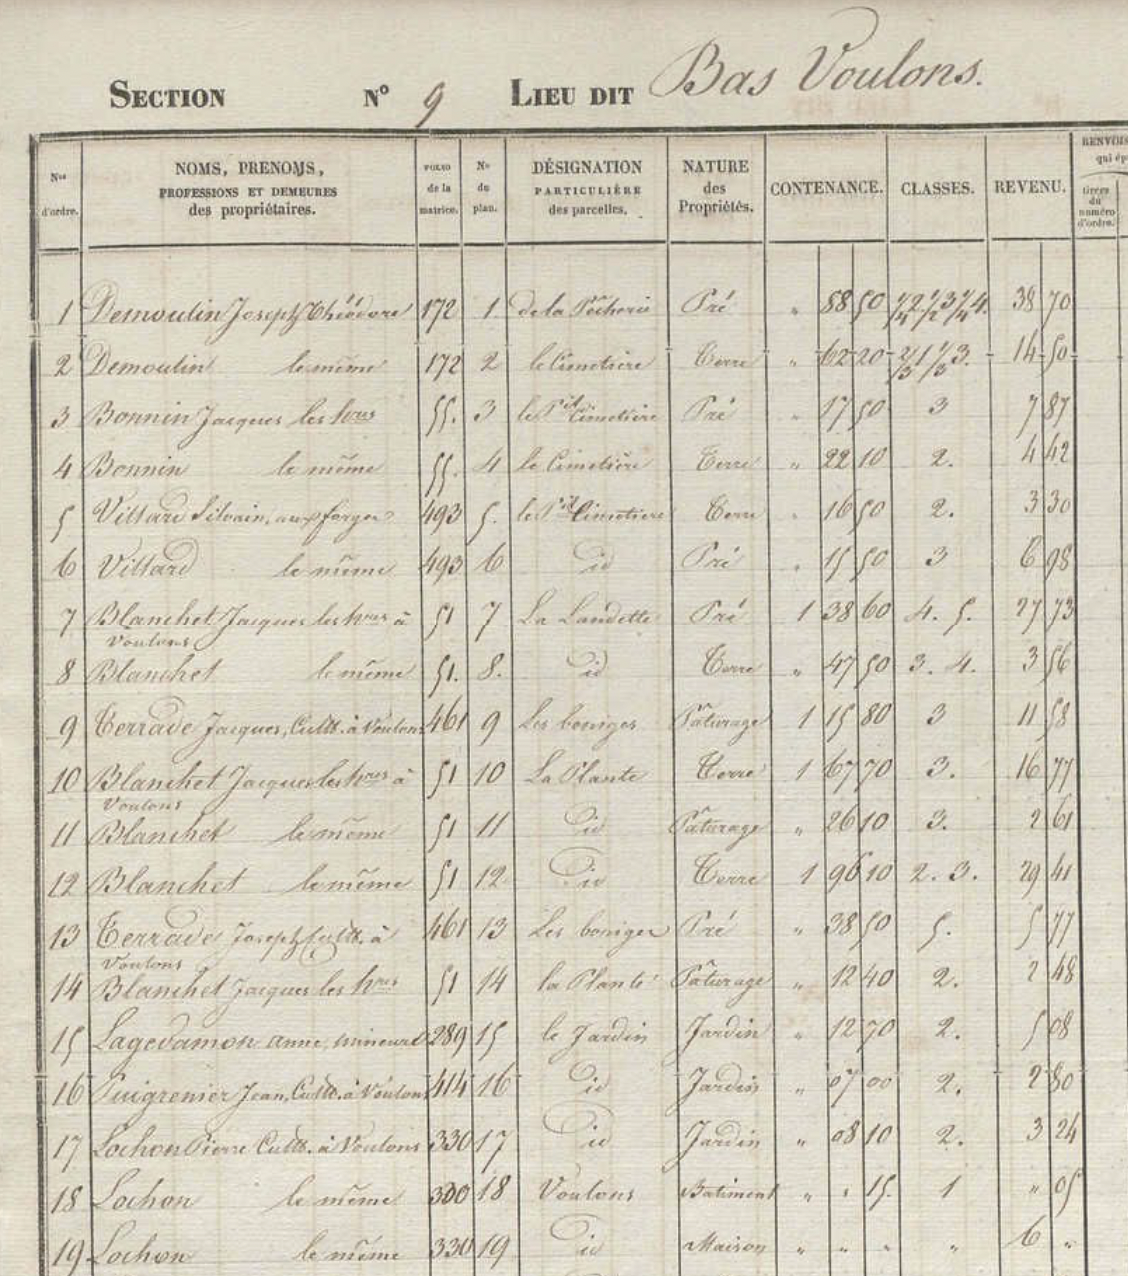 SECTION N° 9 LIEU DIT Bas Voulons.
Nos d'ordre. NOMS, PRENOMS, PROFESSIONS ET DEMEURES des propriétaires. FOLIO de la matrice. No du plan. DÉSIGNATION PARTICULIÈRE des parcelles. NATURE des Propriétés. CONTENANCE. CLASSES. REVENU. RENVOIS qui ép
tirées du numéro d'ordre.
1 Demoulin Joseph Théodore 172 1 de la Pêcherie Pré " 88 50 38 70
2 Demoulin le même 172 2 le Cimetière Terre " 62 20 14 50
3 Bonnin Jacques les hers 55. 3 le Pit Cimetière Pré " 17 50 3 7 87
4 Bonnin le même 55. 4 le Cimetière Terre " 22 10 2. 4 42
5 Villard Silvain, aux forges 493 5. le Pit Cimetière Terre " 16 50 2. 3 30
6 Villard le même 493 6 id Pré " 15 50 3 6 98
7 Blanchet Jacques les hers à 51 7 La Landette Pré 1 38 60 4. 5. 27 73
Voulons
8 Blanchet le même 51. 8. id Terre " 47 50 3. 4. 3 56
9 Terrade Jacques, Cultr. à Voulons 461 9 Les boniges Pâturage 1 15 80 3 11 58
10 Blanchet Jacques les hers à 51 10 La Plante Terre 1 67 70 3. 16 77
Voulons
11 Blanchet le même 51 11 id Pâturage " 26 10 3. 2 61
12 Blanchet le même 51 12 id Terre 1 96 10 2. 3. 29 41
13 Terrade Joseph Cultr. à 461 13 Les boniges Pré " 38 50 5. 5 77
Voulons
14 Blanchet Jacques les hers 51 14 la Plante Pâturage " 12 40 2. 2 48
15 Lagedamon anne, mineure 289 15 le Jardin Jardin " 12 70 2. 5 08
16 Puigrenier Jean, Cultr. à Voulons 414 16 id Jardin " 07 00 2. 2 80
17 Lochon Pierre Cultr. à Voulons 330 17 id Jardin " 08 10 2. 3 24
18 Lochon le même 330 18 Voulons Batiment " " 15. 1 " 05
19 Lochon le même 330 19 id Maison " " " " 6 "